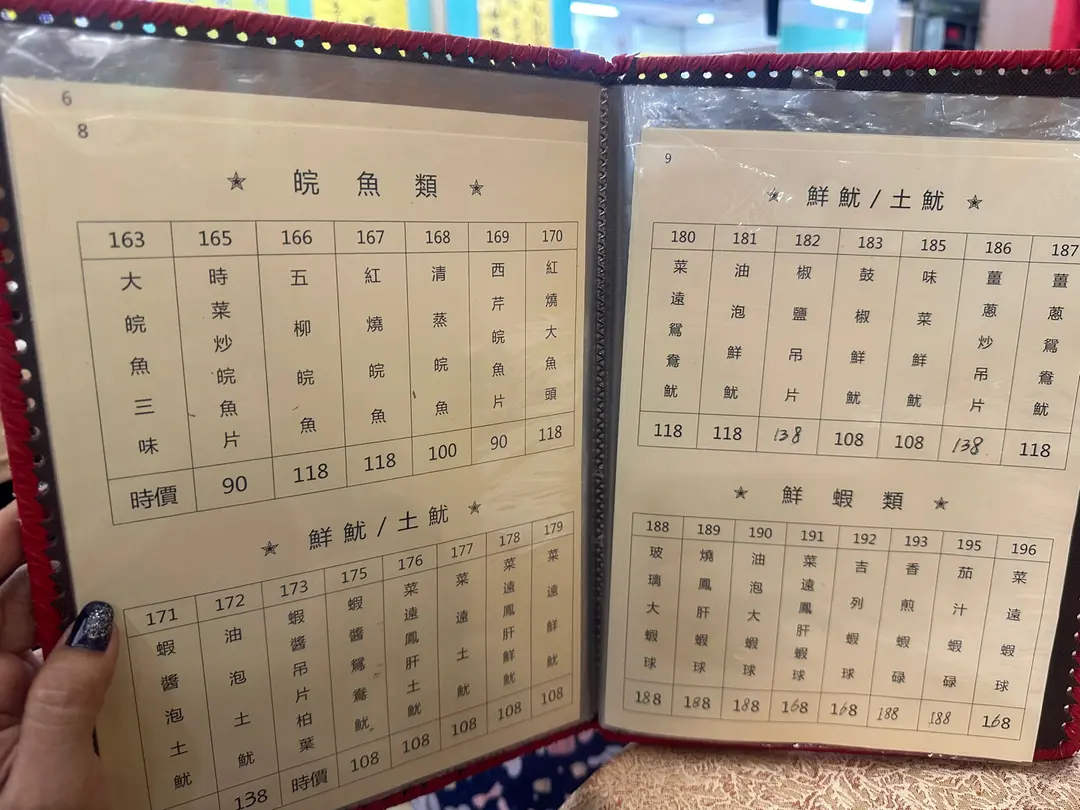 6
8
✯ 皖魚類 ✯
163 165 166 167 168 169 170
大皖魚三味
時菜炒皖魚片
五柳皖魚
紅燒皖魚
清蒸皖魚
西芹皖魚片
紅燒大魚頭
時價 90 118 118 100 90 118
✯ 鮮魷/土魷 ✯
171 172 173 175 176 177 178 179
蝦醬泡土魷
油泡土魷
蝦醬吊片柏葉
蝦醬鴛鴦魷
菜遠鳳肝土魷
菜遠土魷
菜遠鳳肝鮮魷
菜遠鮮魷
138 時價 108 108 108 108 108
9
✯ 鮮魷/土魷 ✯
180 181 182 183 185 186 187
菜遠鴛鴦魷
油泡鮮魷
椒鹽吊片
鼓椒鮮魷
味菜鮮魷
薑蔥炒吊片
薑蔥鴛鴦魷
118 118 138 108 108 138 118
✯ 鮮蝦類 ✯
188 189 190 191 192 193 195 196
玻璃大蝦球
燒鳳肝蝦球
油泡大蝦球
菜遠鳳肝蝦球
吉列蝦球
香煎蝦碌
茄汁蝦碌
菜遠蝦球
188 188 188 168 168 188 188 168